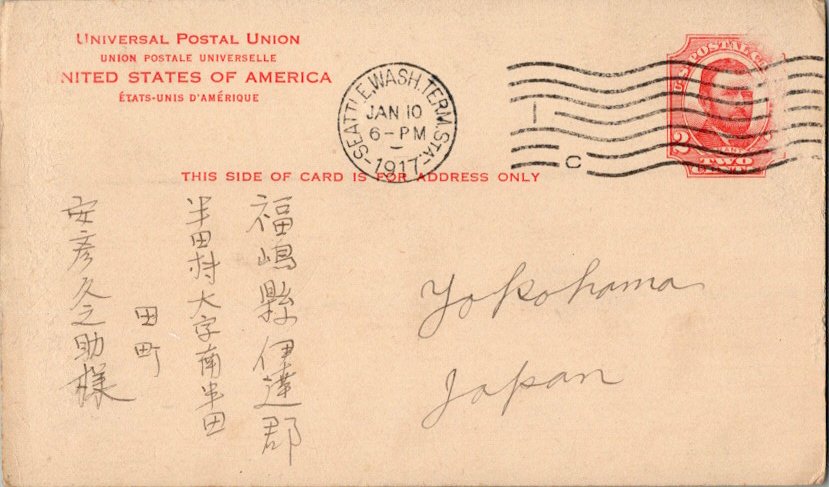 UNIVERSAL POSTAL UNION
UNION POSTALE UNIVERSELLE
NITED STATES OF AMERICA
ÉTATS-UNIS D'AMÉRIQUE
SEATTLE, WASH. TERM. STA.
JAN 10
6-PM
1917
C
U.S. POSTAL
2
TWO
THIS SIDE OF CARD IS FOR ADDRESS ONLY
福嶋縣伊達郡
半田村大字南半田
田町
安彦久之助様
Yokohama
Japan